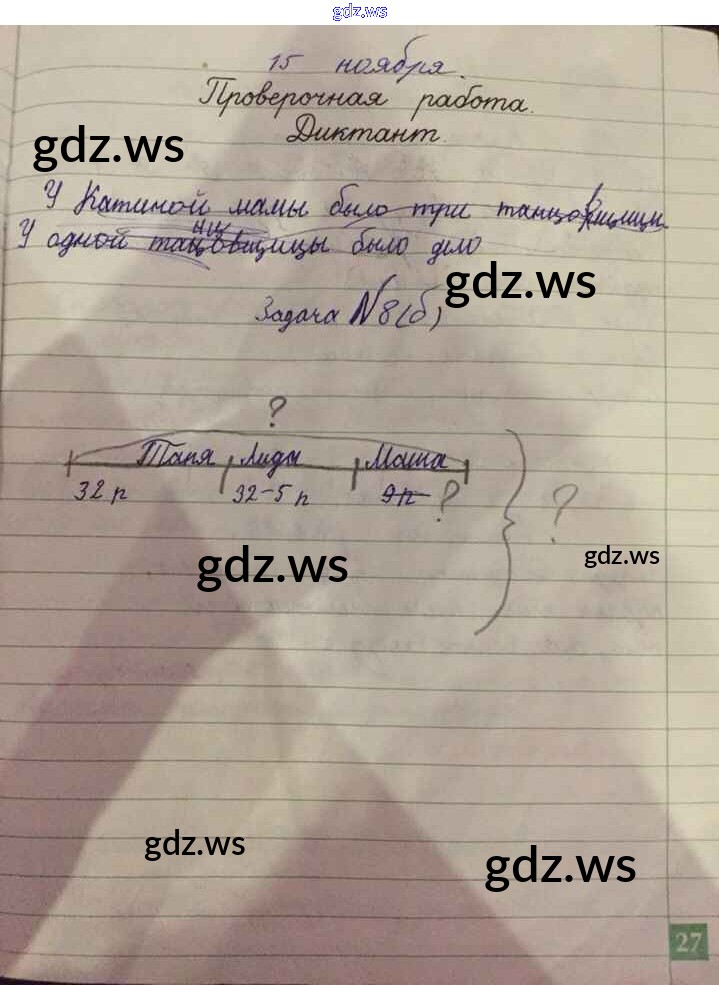 gdz.ws
15 ноября.
Проверочная работа.
Диктант.
gdz.ws
У Катиной мамы было три
У одной было дело
gdz.ws
Задача №8(б)
?
Таня Лиды Маша
32 п 32-5 п 9п ? ?
gdz.ws
gdz.ws
gdz.ws
gdz.ws
27